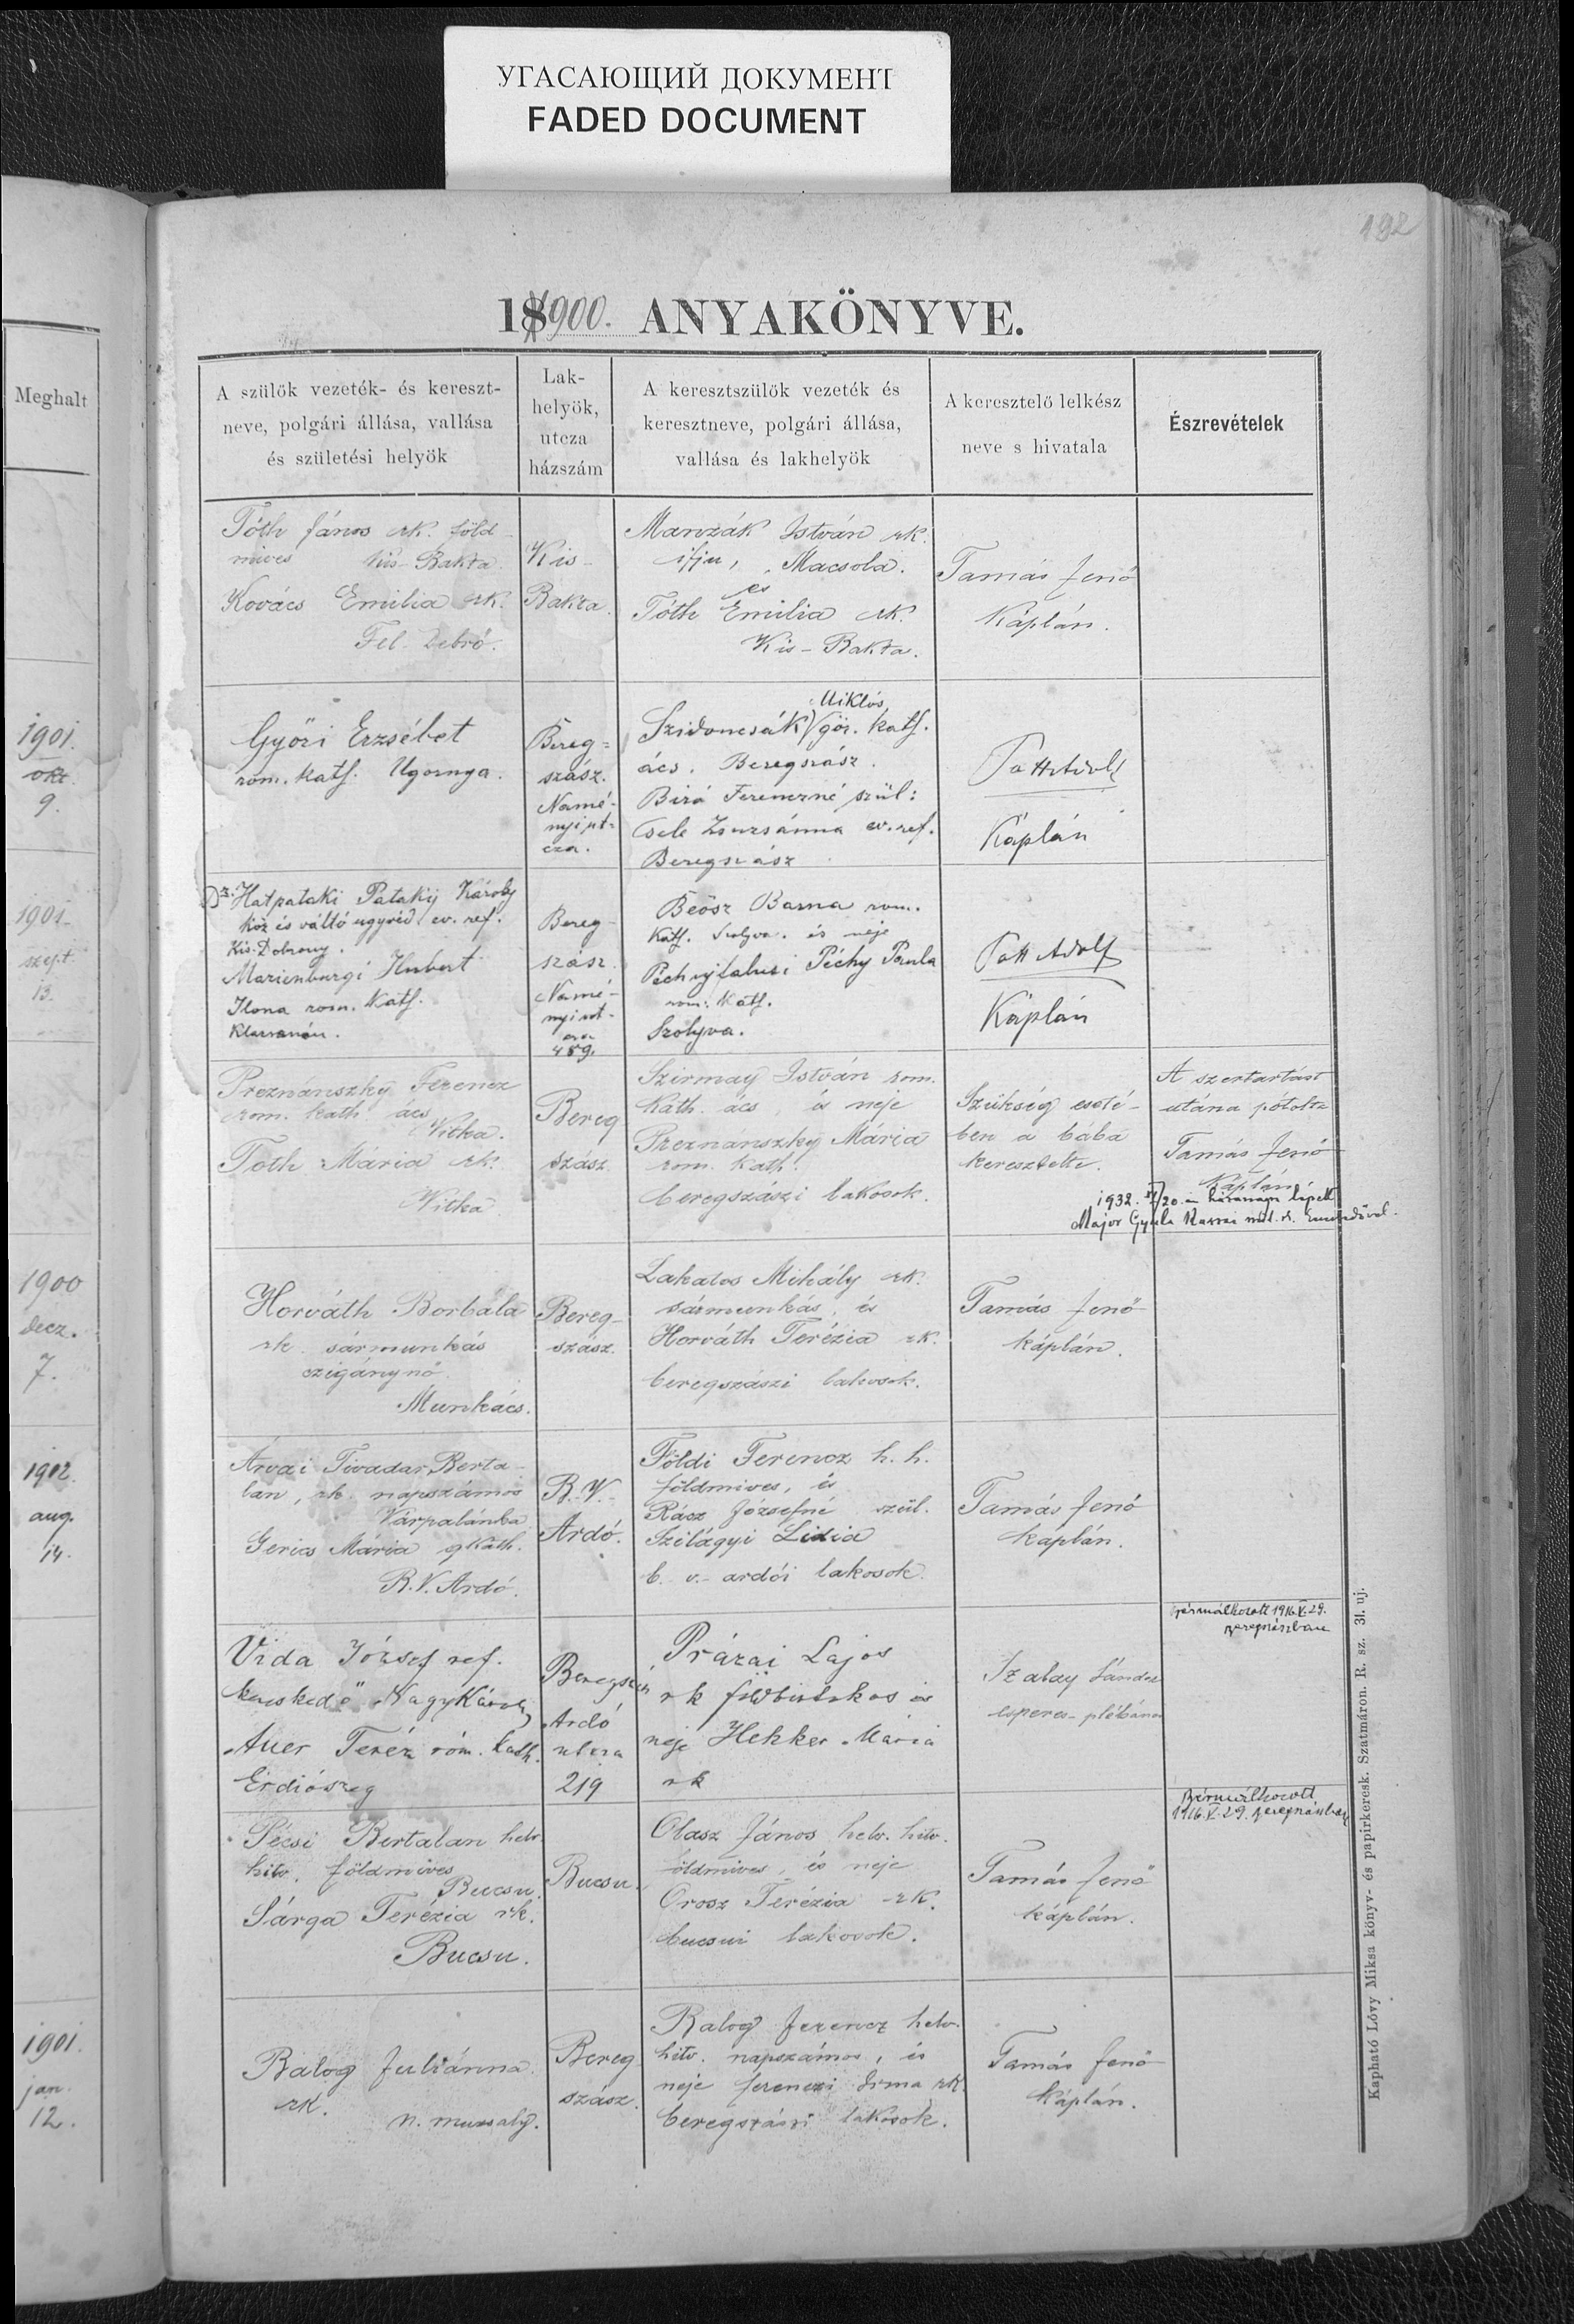 УГАСАЮЩИЙ ДОКУМЕНТ
FADED DOCUMENT
192
1900. ANYAKÖNYVE.
Meghalt
A szülök vezeték- és kereszt-
neve, polgári állása, vallása
és születési helyök
Lak-
helyök,
utcza
házszám
A keresztszülök vezeték és
keresztneve, polgári állása,
vallása és lakhelyök
A keresztelö lelkész
neve s hivatala
Észrevételek
Tóth János rk. föld
mives Kis-Bakta
Kovács Emilia rk.
Fel. Debrő.
Kis-
Bakta.
István rk.
ifju, Macsola.
és
Tóth Emilia rk.
Kis-Bakta.
Tamás Jenő
Káplán.
1901.
okt.
9.
Győri Erzsébet
rom. kath. Ugornya.
Bereg-
szász.
Namé-
nyi ut-
cza.
Miklós
Szidoncsák gör. kath.
ács. Beregszász.
Biró Ferenczné szül:
Csele Zsuzsánna ev. ref.
Beregszász
Patt Adolf
Káplán
1901.
szept.
13.
Dr. Hatpataki Pataky Károly
köz és váltó ugyvéd ev. ref.
Kis-Dobrony.
Marienburgi Hubert
Ilona rom. Kath.
Bereg
szász
Namé-
nyi ut-
489.
Beősz Barna rom.
Kath. Szolyva. és neje
Péchujfalusi Péchy Paula
rom. Kath.
Szolyva.
Patt Adolf
Káplán
Preznánszky Ferencz
rom. kath ács
Vitka.
Tóth Mária rk.
Vitka.
Bereg
szász
Szirmay István rom.
kath. ács, és neje
Preznánszky Mária
rom. kath.
beregszászi lakosok.
Szükség eseté-
ben a bába
keresztelte.
A szertartást
utána pótolta
Tamás Jenő
Káplán
1932. IV/20-án házasságra lépett
Major Gyula
1900
decz.
7.
Horváth Borbála
rk sármunkás
czigánynő
Munkács.
Bereg-
szász.
Lakatos Mihály rk.
sármunkás, és
Horváth Terézia rk.
beregszászi lakosok.
Tamás Jenő
káplán.
1912.
aug.
14.
Árvai Tivadar Berta-
lan, rk. napszámos
Várpalánka
Gerics Mária gkath.
B.V. Ardó.
B.V.-
Ardó.
Földi Ferencz h. h.
földmives, és
Rácz Józsefné szül.
Szilágyi Lidia
b. v.- ardói lakosok.
Tamás Jenő
káplán.
Bérmálkozott 1916.V.29.
Beregszászban
Vida József ref.
kereskedő Nagy Károly
Auer Teréz róm. kath.
Érdiószeg
Beregszász
Ardó
utcza
219
Prázai Lajos
rk földbirtokos és
neje Hekker Mária
rk
Szalay Sándor
esperes-plébános
Bérmálkozott
1916.V.29. Beregszászban
Pécsi Bertalan helv.
hitv. földmives
Bucsu.
Sárga Terézia rk.
Bucsu.
Bucsu.
Olasz János helv. hitv.
földmives, és neje
Orosz Terézia rk.
bucsui lakosok.
Tamás Jenő
káplán.
1901.
jan.
12.
Balog Juliánna
rk.
n. muzsaly.
Bereg
szász.
Balog Ferencz helv.
hitv. napszámos, és
neje Ferenczi Irma rk.
beregszászi lakosok.
Tamás Jenő
káplán.
Kapható Lővy Miksa könyv- és papirkeresk. Szatmáron. R. sz. 31. uj.